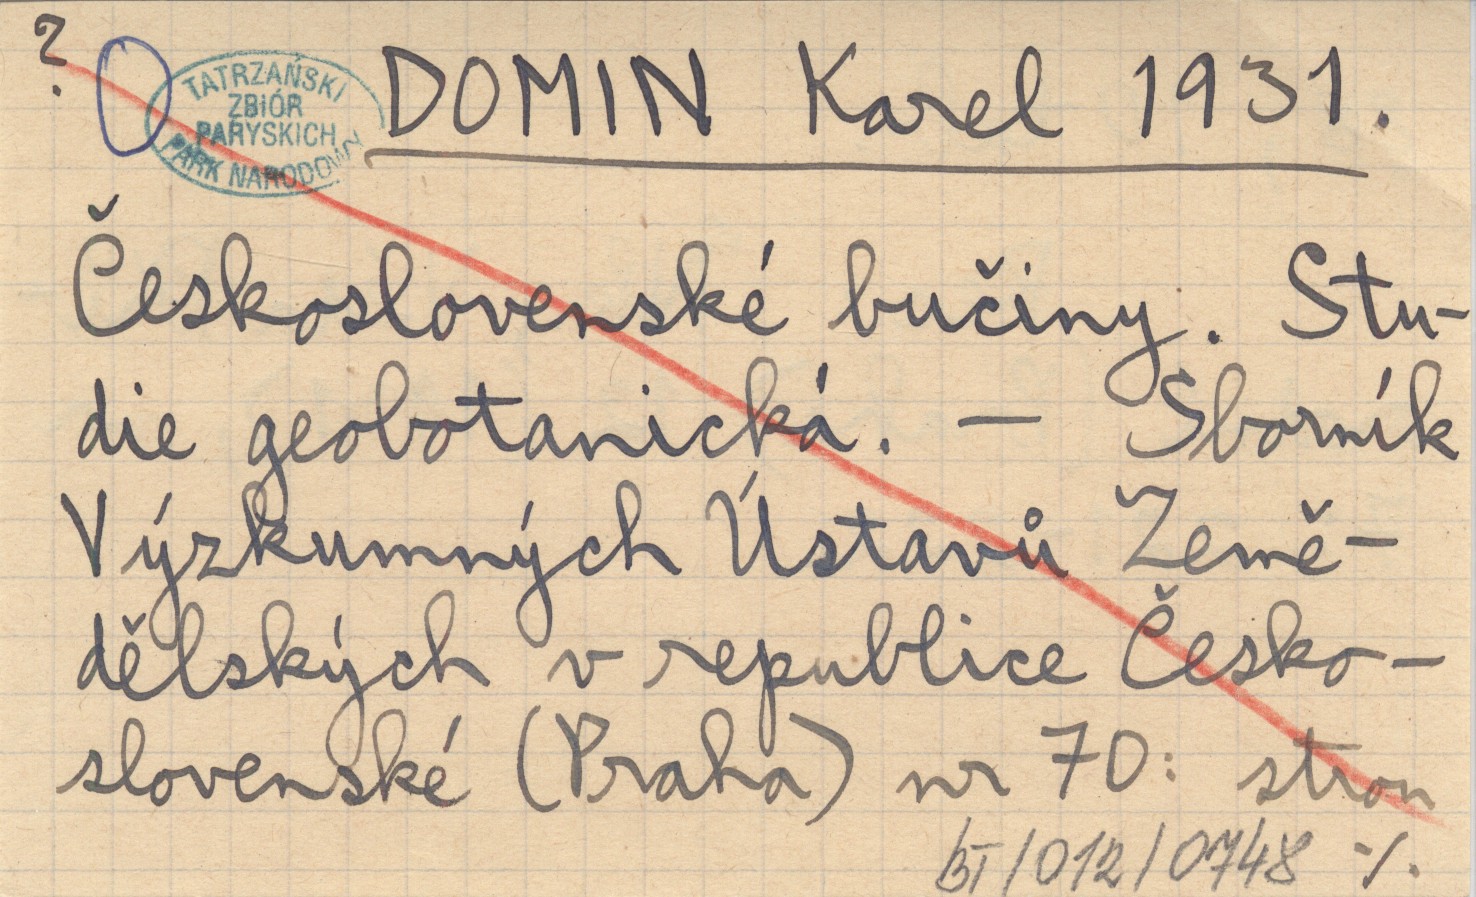 ?
TATRZAŃSKI
ZBIÓR
PARYSKICH
PARK NARODOWY
DOMIN Karel 1931.
Československé bučiny. Stu-
die geobotanická. — Sborník
Výzkumných Ústavů Země-
dělských v republice Česko-
slovenské (Praha) nr 70: stron
BT/012/0748 ./.